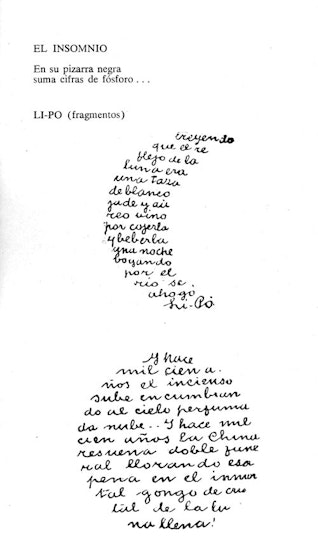 EL INSOMNIO
En su pizarra negra
suma cifras de fósforo . . .
LI-PO (fragmentos)
creyendo
que el re
flejo de la
luna era
una taza
de blanco
jade y aú
reo vino
por cogerla
y beberla
una noche
bogando
por el
río se
ahogó
Li-Pó
Y hace
mil cien a
ños el incienso
sube encumbran
do al cielo perfuma
da nube.. Y hace mil
cien años la China
resuena doble fune
ral llorando esa
pena en el inmor
tal gongo de cris
tal de la lu
na llena!